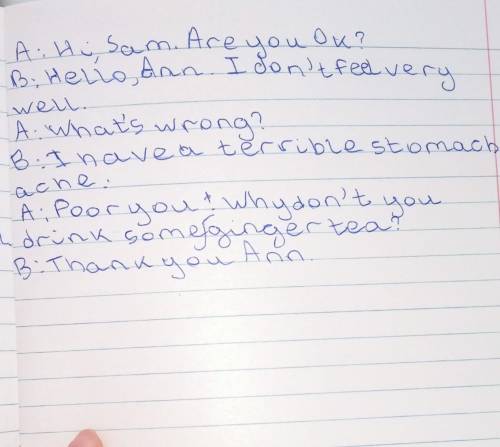 A: Hi, Sam. Are you Ok?
B: Hello, Ann. I don't feel very
well.
A: What's wrong?
B: I have a terrible stomach
ache.
A: Poor you! Why don't you
drink some ginger tea?
B: Thank you Ann.